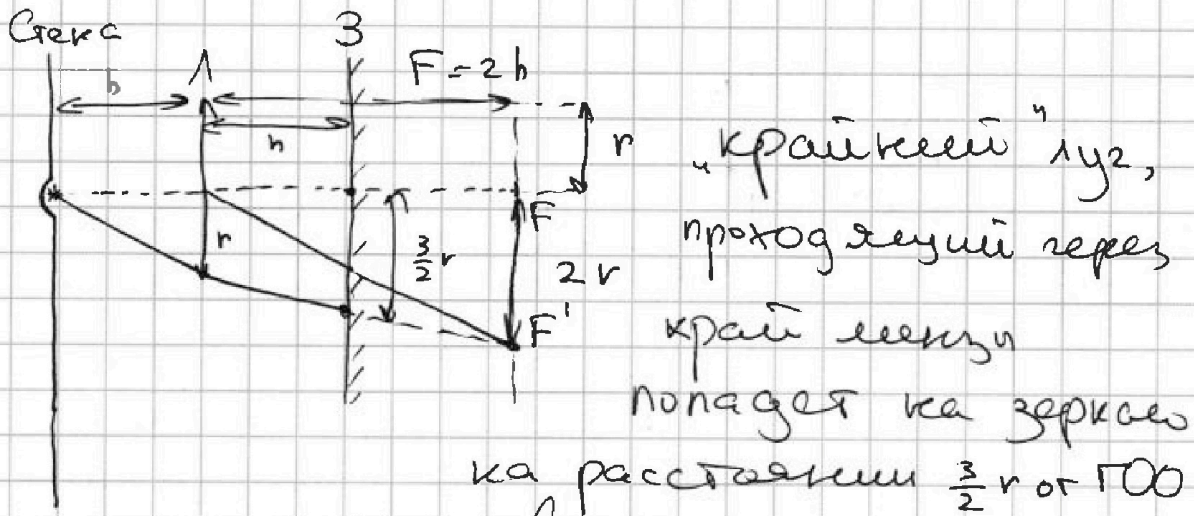 Стена
Л
З
F = 2h
h
h
r
r
3/2 r
F
2r
F'
„крайний" луч,
проходящий через
край линзы
попадет на зеркало
на расстоянии 3/2 r от ГОО